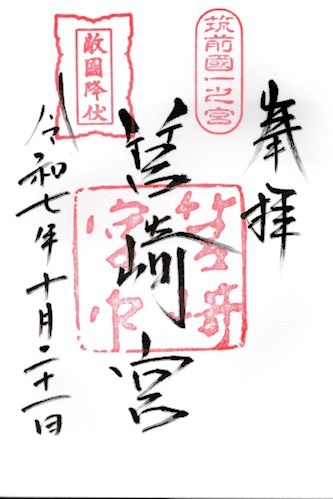 奉拝
筑前國一之宮
筥崎宮
敵國降伏
令和七年十月二十一日